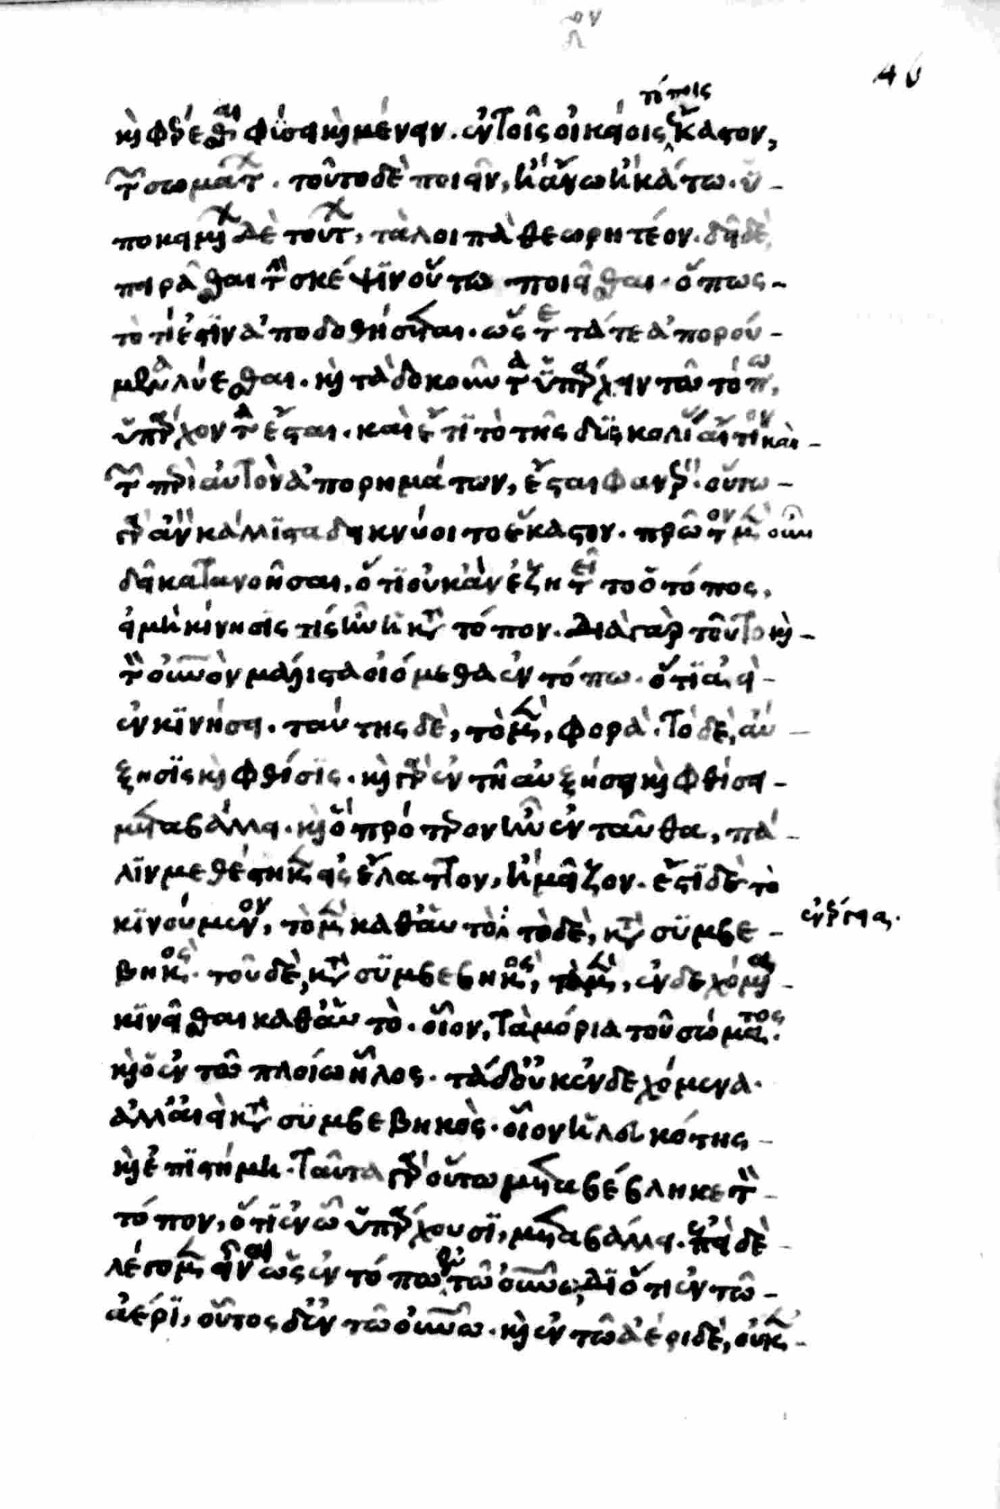 46
τόποις
καὶ φέρεσθαι φύσει καὶ μένειν ἐν τοῖς οἰκείοις ἕκαστον,
τῶν σωμάτων. τοῦτο δὲ ποιεῖν, ἢ ἄνω ἢ κάτω. ὑ-
ποκειμένων δὲ τούτων, τὰ λοιπὰ θεωρητέον. δεῖ δὲ
πειρᾶσθαι τὴν σκέψιν οὕτω ποιεῖσθαι. ὅπως
τὸ τί ἐστιν ἀποδοθήσεται. ὥστε τά τε ἀπορού-
μενα λύεσθαι. καὶ τὰ δοκοῦντα ὑπάρχειν τῷ τόπῳ,
ὑπάρχοντα ἔσται. καὶ ἔτι τὸ τῆς δυσκολίας αἴτιον καὶ
τῶν περὶ αὐτὸν ἀπορημάτων, ἔσται φανερόν. οὕτω
γὰρ ἂν κάλλιστα δεικνύοιτο ἕκαστον. πρῶτον μὲν οὖν
δεῖ κατανοῆσαι, ὅτι οὐκ ἂν ἐζητεῖτο ὁ τόπος,
εἰ μὴ κίνησίς τις ἦν ἡ κατὰ τόπον. διὰ γὰρ τοῦτο καὶ
τὸν οὐρανὸν μάλιστα οἰόμεθα ἐν τόπω. ὅτι ἀεὶ
ἐν κινήσει. ταύτης δὲ, τὸ μὲν, φορὰ. τὸ δὲ, αὔ
ξησις καὶ φθίσις. καὶ γὰρ ἐν τῆ αὐξήσει καὶ φθίσει
μεταβάλλει. καὶ ὃ πρότερον ἦν ἐνταῦθα, πά
λιν μεθέστηκεν εἰς ἔλαττον, ἢ μεῖζον. ἔστι δὲ τὸ
κινούμενον, τὸ μὲν καθ' αὑτὸ. τὸ δὲ, κατὰ συμβε- ἐνεργεία.
βηκός. τοῦ δὲ, κατὰ συμβεβηκός, τὸ μὲν, ἐνδεχόμενον
κινεῖσθαι καθ' αὑτὸ. οἷον, τὰ μόρια τοῦ σώματος.
καὶ ὁ ἐν τῷ πλοίω ἧλος. τὰ δ' οὐκ ἐνδεχόμενα.
ἀλλ' ἀεὶ κατὰ συμβεβηκὸς. οἷον ἡ λευκότης
καὶ ἐπιστήμη. ταῦτα γὰρ οὕτω μεταβέβληκε τὸν
τόπον, ὅτι ἐν ᾧ ὑπάρχουσι, μεταβάλλει. ἐπεὶ δὲ
λέγομεν εἶναι ὡς ἐν τόπω ἐν τῷ οὐρανῷ, διότι ἐν τῷ
ἀέρι, οὗτος δ' ἐν τῷ οὐρανῷ. καὶ ἐν τῷ ἀέρι δὲ, οὐκ